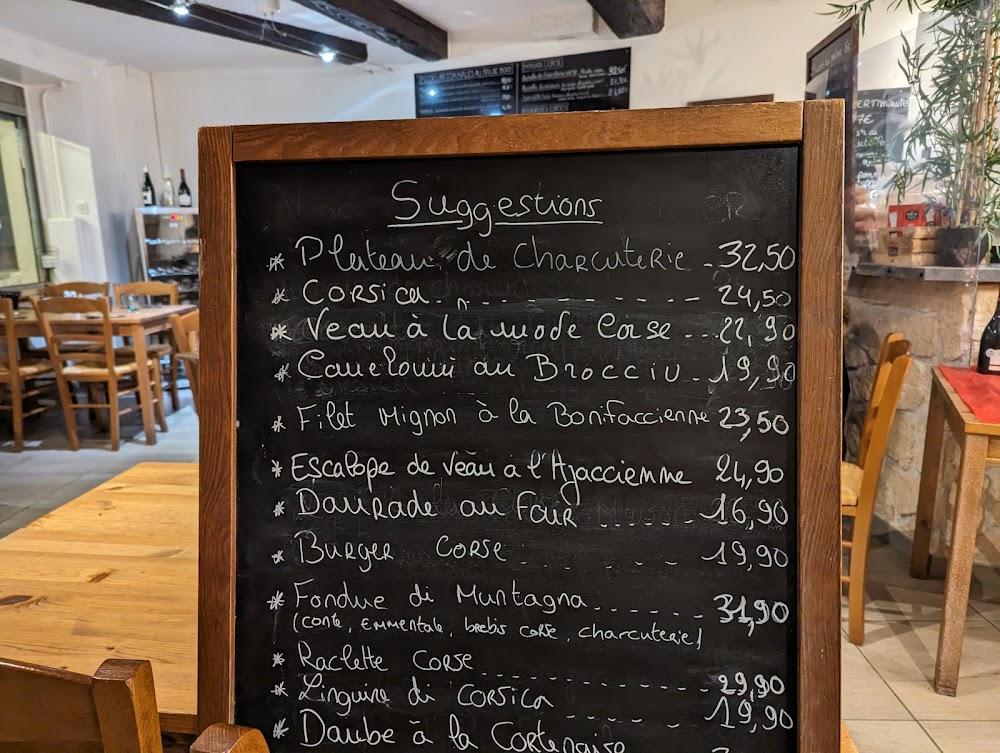 Suggestions
* Plateau de Charcuterie - 32,50
* Corsica - - - - - - - - - - 24,50
* Veau à la mode Corse - - - 22,90
* Cannelonni au Brocciu - 19,90
* Filet Mignon à la Bonifaccienne 23,50
* Escalope de veau à l'Ajaccienne 24,90
* Daurade au Four - - - - - - 16,90
* Burger Corse - - - - - 19,90
* Fondue di Muntagna - - - - - - 31,90
(conte, emmentale, brebis corse, charcuterie)
* Raclette Corse - - - - - - - 29,90
* Linguine di Corsica - - - - - - 19,90
* Daube à la Cortenaise